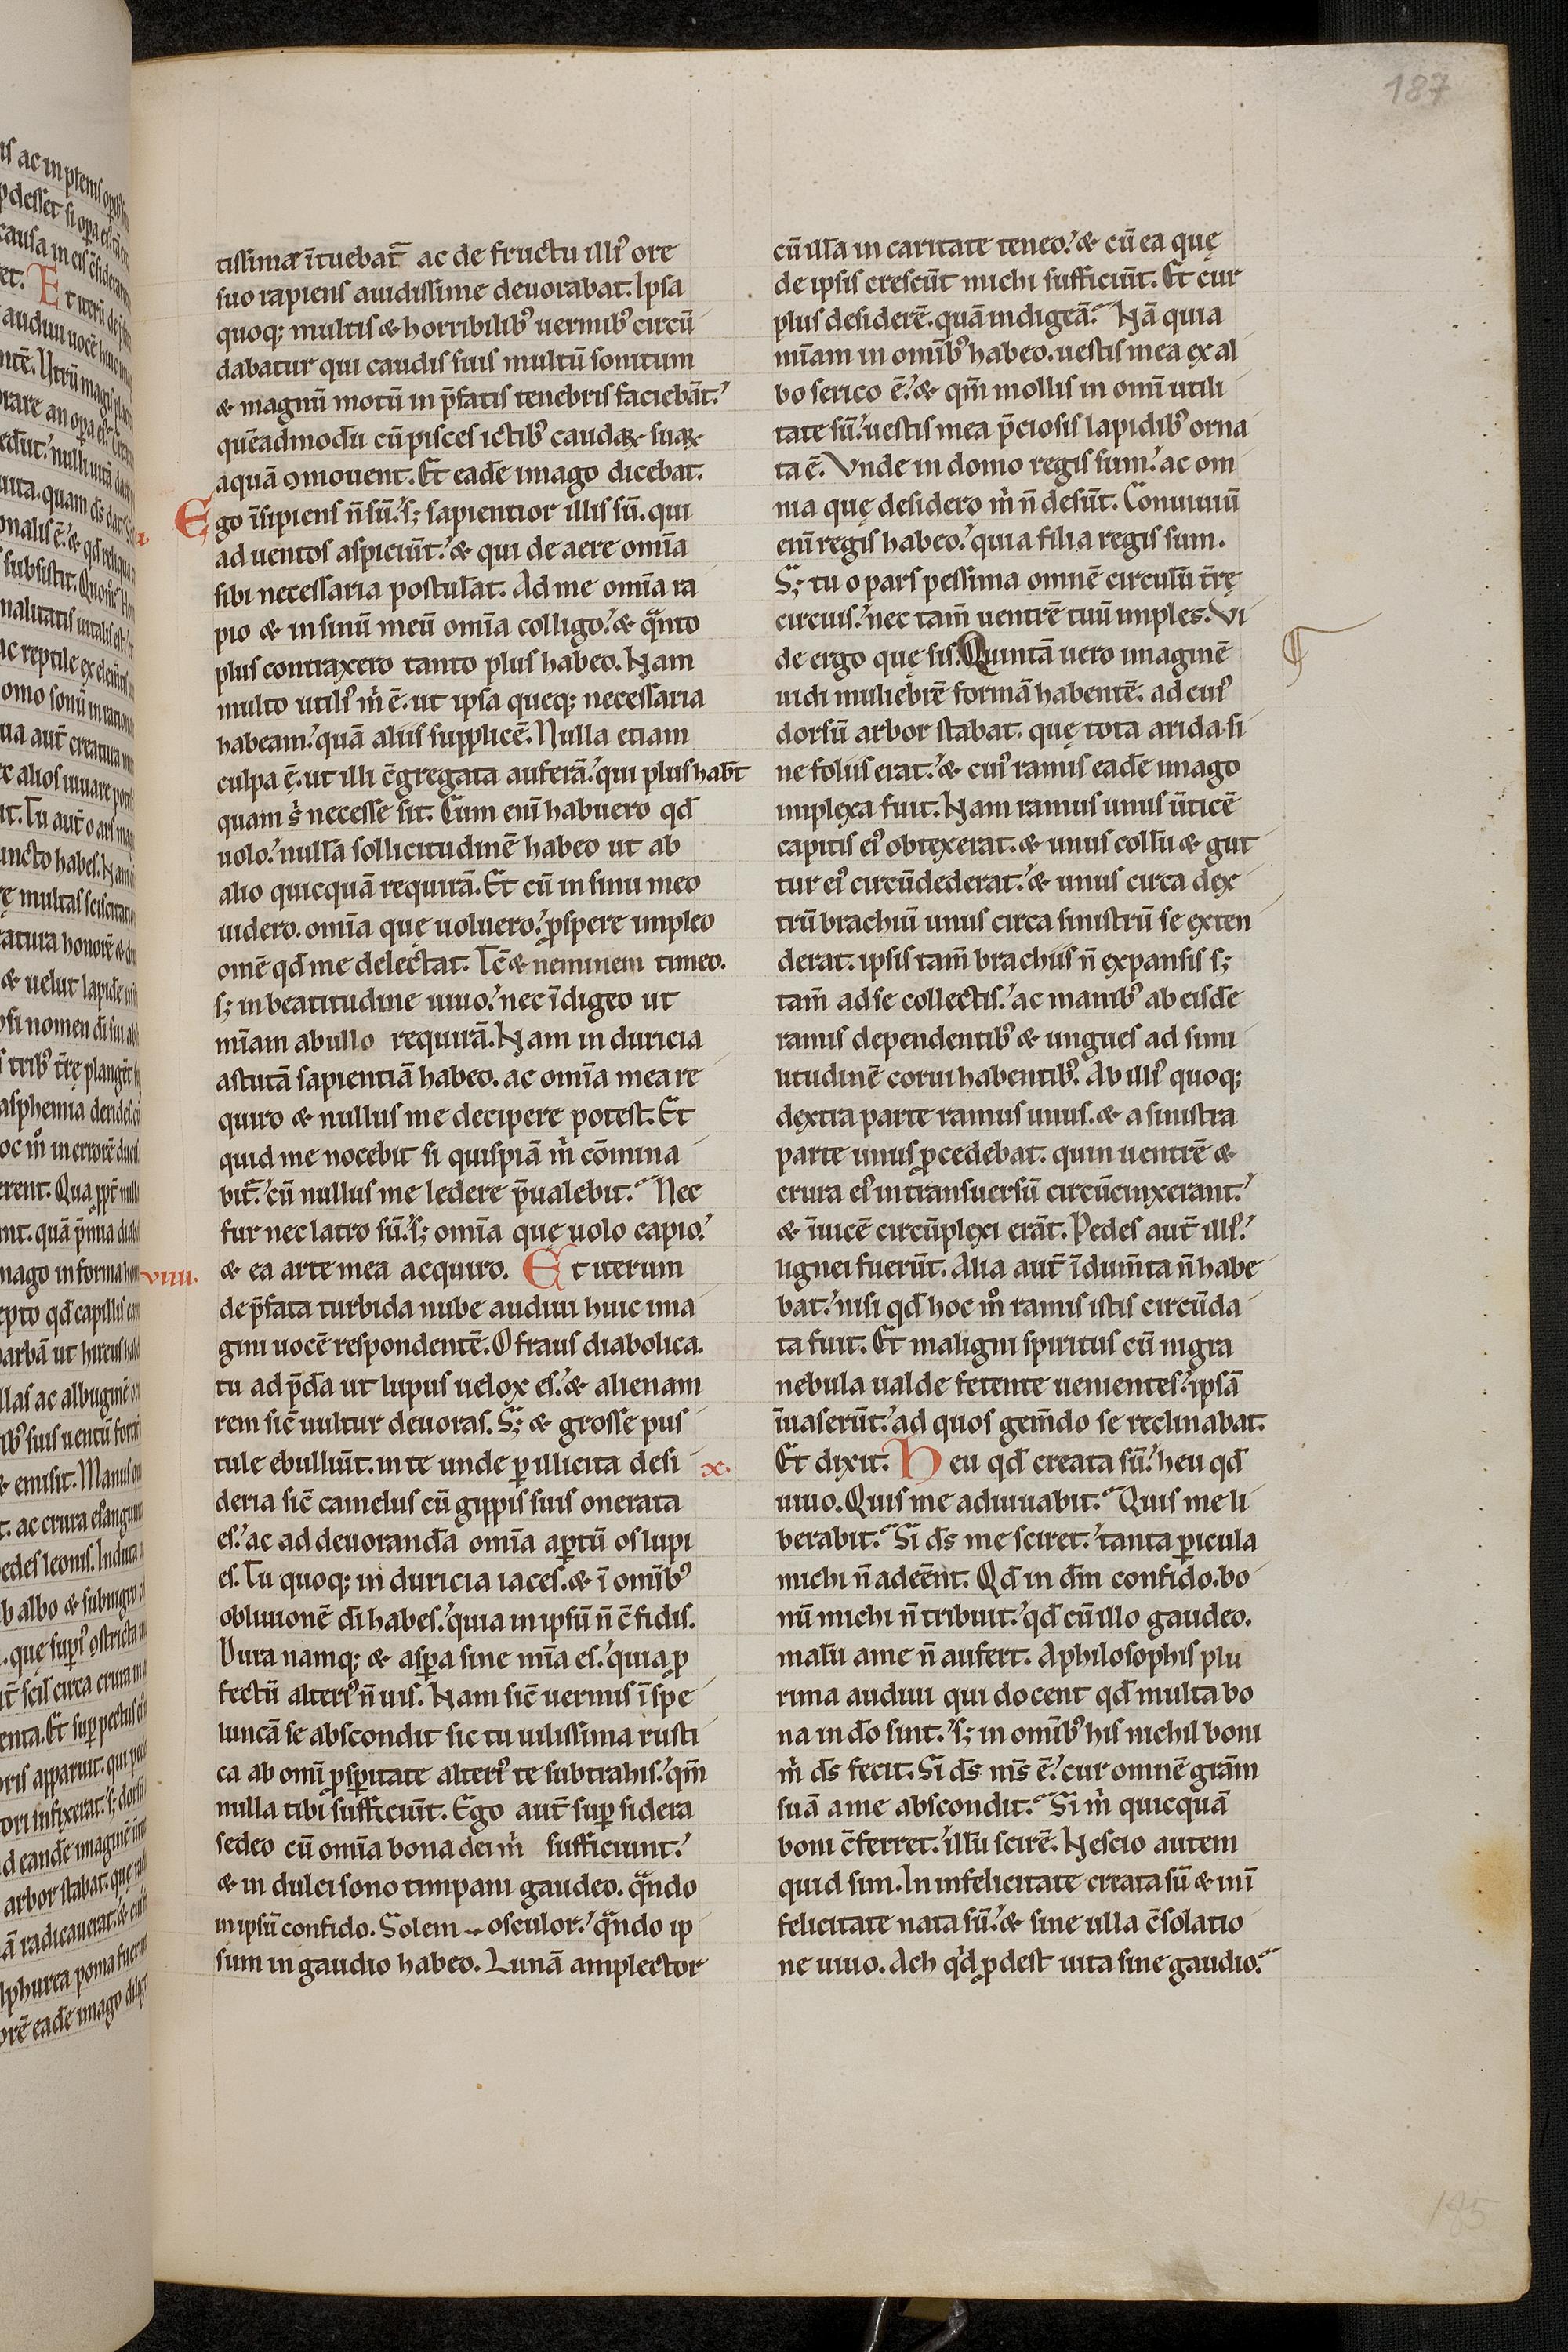 187
tissimæ ītuebat̄ ac de fructu illiꝰ ore
suo rapiens auidissime deuorabat. Ipsa
quoq; multis & horribilibꝰ uermibꝰ circū
dabatur qui caudis suis multū sonitum
& magnū motū in p̄fatis tenebris faciebāt.
quēadmodū cū pisces ictibꝰ caudaꝝ suaꝝ
aquā ꝯmouent. Et eadē imago dicebat.
Ego īsipiens n̄ sū. s; sapientior illis sū. qui
ad uentos aspiciūt. & qui de aere om̄ia
sibi necessaria postulāt. Ad me om̄ia ra
pio & in sinū meū om̄ia colligo. & qͣnto
plus contraxero tanto plus habeo. Nam
multo utiliꝰ m̍ ē. ut ipsa queq; necessaria
habeam. quā aliis supplicē. Nulla etiam
culpa ē. ut illi c̄gregata auferā. qui plus hab̄t
quam s̍ necesse sit. Cum eni habuero qd̄
uolo. nullā sollicitudinē habeo ut ab
alio quicquā requirā. Et cū in sinu meo
uidero. om̄ia quę uoluero. ꝓspere impleo
omē qd̄ me delectat. Tc̄ & neminem timeo.
s; in beatitudine uiuo. nec īdigeo ut
mīam ab ullo requirā. Nam in duricia
astutā sapientiā habeo. ac om̄ia mea re
quiro & nullus me decipere potest. Et
quid me nocebit si quispiā m̍ cōmina
bit̄. cū nullus me ledere p̄ualebit. Nec
fur nec latro sū. s; om̄ia que uolo capio.
viiii. & ea arte mea acquiro. Et iterum
de p̄fata turbida nube audiui huic ima
gini uocē respondentē. O fraus diabolica.
tu ad p̄dā ut lupus uelox es. & alienam
rem sic̄ uultur deuoras. S; & grosse pus
tule ebulliūt. in te unde ꝑ illicita desi
deria sic̄ camelus cū gippis suis onerata
es. ac ad deuorandā om̄ia aptū os lupi
es. Tu quoq; in duricia iaces. & ī omībꝰ
obliuionē dī habes. quia in ipsū n̄ c̄fidis.
Dura namq; & aspa sine mīa es. quia ꝓ
fectū alteriꝰ n̄ uis. Nam sic̄ uermis ī spe
luncā se abscondit sic tu uilissima rusti
ca ab omī ꝓspitate alteriꝰ te subtrahis. qm̄
nulla tibi sufficiūt. Ego aut̄ suꝑ sidera
sedeo cū om̄ia bona dei m̍ sufficiunt.
& in dulci sono timpani gaudeo. qͣndo
in ipsū confido. Solem osculor. qͣndo ip
sum in gaudio habeo. Lunā amplector
cū illa in caritate teneo. & cū ea quę
de ipsis crescūt michi sufficiūt. Et cur
plus desiderē. quā indigeā. Nā quia
mīam in omībꝰ habeo. uestis mea ex al
bo serico ē. & qm̄ mollis in omī utili
tate sū. uestis mea p̄ciosis lapidibꝰ orna
ta ē. Vnde in domo regis sum. ac om
nia quę desidero m̍ n̄ desūt. Conuiuiū
enī regis habeo. quia filia regis sum.
S; tu o pars pessima omnē circulū t̄rę
circuis. nec tam̄ uentrē tuū imples. Vi
de ergo que sis. Quintā uero imaginē
uidi muliebrē formā habentē. ad cuiꝰ
dorsū arbor stabat. quę tota arida. si
ne foliis erat. & cuiꝰ ramis eadē imago
implexa fuit. Nam ramus unus ūticē
capitis eiꝰ obtexerat. & unus collū & gut
tur eiꝰ circūdederat. & unus circa dex
trū brachiū unus circa sinistrū se exten
derat. ipsis tam̄ brachiis n̄ expansis s;
tam̄ ad se collectis. ac manibꝰ ab eisdē
ramis dependentibꝰ & ungues ad simi
litudinē corui habentibꝰ. Ab illiꝰ quoq;
dextra parte ramus unus. & a sinistra
parte unus ꝓcedebat. qui uentrē &
crura eiꝰ in transuersū circūcinxerant.
& īuicē circūplexi erāt. Pedes aut̄ illiꝰ.
lignei fuerūt. Alia aut̄ īdum̄ta n̄ habe
bat. nisi qd̄ hoc mͦ ramis istis circūda
ta fuit. Et maligni spiritus cū nigra
nebula ualde fetente uenientes. ipsā
īuaserūt. ad quos gem̄do se reclinabat.
x. Et dixit. Heu qd̄ creata sū. heu qd̄
uiuo. Quis me adiuuabit. Quis me li
berabit. Si ds̄ me sciret. tanta ꝑicula
michi n̄ adeēnt. Qd̄ in dm̄ confido. bo
nū michi n̄ tribuit. qd̄ cū illo gaudeo.
malū a me n̄ aufert. A philosophis plu
rima audiui qui docent qd̄ multa bo
na in dō sint. s; in omībꝰ his nichil boni
m̍ ds̄ fecit. Si ds̄ ms̄ ē. cur omnē grām
suā a me abscondit. Si m̍ quicquā
boni c̄ferret. illū scirē. Nescio autem
quid sim. In infelicitate creata sū & in ī
felicitate nata sū. & sine ulla c̄solatio
ne uiuo. Ach qͥd ꝓdest uita sine gaudio.
185